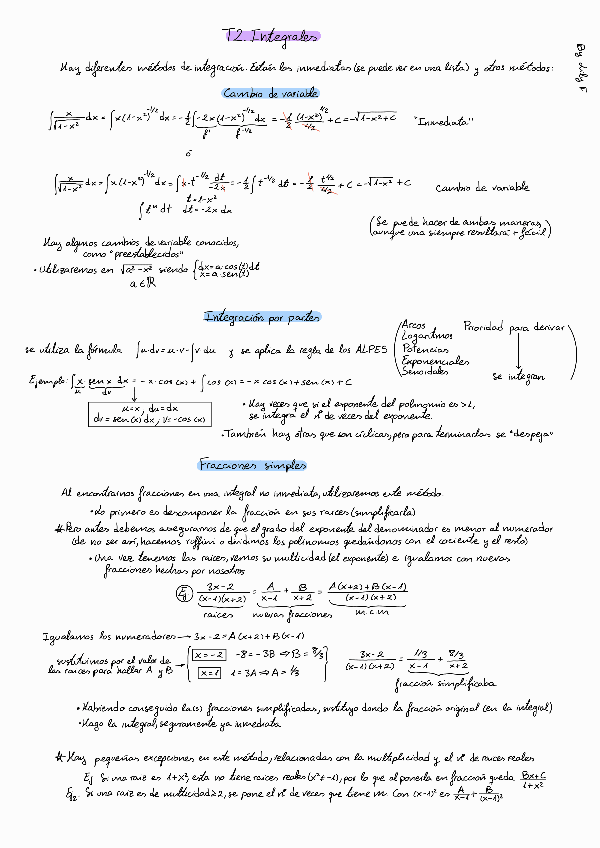 T2. Integrales
By Lily F
Hay diferentes métodos de integración. Están los inmediatas (se puede ver en una lista) y otros métodos:
Cambio de variable
∫ x/√(1-x²) dx = ∫ x(1-x²)^(-1/2) dx = -1/2 ∫ -2x(1-x²)^(-1/2) dx = -1/2 (1-x²)^(1/2)/(1/2) + C = -√(1-x²) + C "Inmediata"
f' f^(-1/2)
ó
∫ x/√(1-x²) dx = ∫ x(1-x²)^(-1/2) dx = ∫ x·t^(-1/2) dt/(-2x) = -1/2 ∫ t^(-1/2) dt = -1/2 t^(1/2)/(1/2) + C = -√(1-x²) + C Cambio de variable
t=1-x²
∫ tⁿ dt dt=-2x dx
(Se puede hacer de ambas maneras,
aunque una siempre resultará + fácil)
Hay algunos cambios de variable conocidos,
como "preestablecidos"
• Utilizaremos en √(a²-x²) siendo { dx=a·cos(t)dt
x=a·sen(t)
a∈ℝ
Integración por partes
se utiliza la fórmula ∫u·dv=u·v-∫v du y se aplica la regla de los ALPES
Arcos Prioridad para derivar
Logaritmos
Potencias
Exponenciales
Senoidales se integran
Ejemplo: ∫ x sen x dx = -x·cos(x) + ∫cos(x) = -x cos(x) + sen(x) + C
u dv
u=x, du=dx
dv=sen(x)dx, v=-cos(x)
• Hay veces que si el exponente del polinomio es >1,
se integra el nº de veces del exponente.
• También hay otras que son cíclicas, pero para terminarlas se "despeja"
Fracciones simples
Al encontrarnos fracciones en una integral no inmediata, utilizaremos este método.
• Lo primero es descomponer la fracción en sus raíces (simplificarla)
* Pero antes debemos asegurarnos de que el grado del exponente del denominador es menor al numerador
(de no ser así, hacemos ruffini o dividimos los polinomios quedándonos con el cociente y el resto)
• Una vez tenemos las raíces, vemos su multicidad (el exponente) e igualamos con nuevas
fracciones hechas por nosotros
Ej (3x-2)/((x-1)(x+2)) = A/(x-1) + B/(x+2) = (A(x+2)+B(x-1))/((x-1)(x+2))
raíces nuevas fracciones m.c.m
Igualamos los numeradores → 3x-2=A(x+2)+B(x-1)
sustituimos por el valor de
las raíces para hallar A y B →
x=-2 -8=-3B ⇒ B=8/3
x=1 1=3A ⇒ A=1/3
(3x-2)/((x-1)(x+2)) = (1/3)/(x-1) + (8/3)/(x+2)
fracción simplificada
• Habiendo conseguido la(s) fracciones simplificadas, sustituyo dando la fracción original (en la integral)
• Hago la integral, seguramente ya inmediata
* Hay pequeñas excepciones en este método, relacionadas con la multiplicidad y el nº de raíces reales
Ej Si una raíz es 1+x², esta no tiene raíces reales (x²≠-1), por lo que al ponerla en fracción queda (Bx+C)/(1+x²)
Ej2: Si una raíz es de multicidad ≥2, se pone el nº de veces que tiene m. Con (x-1)² es A/(x-1) + B/(x-1)²